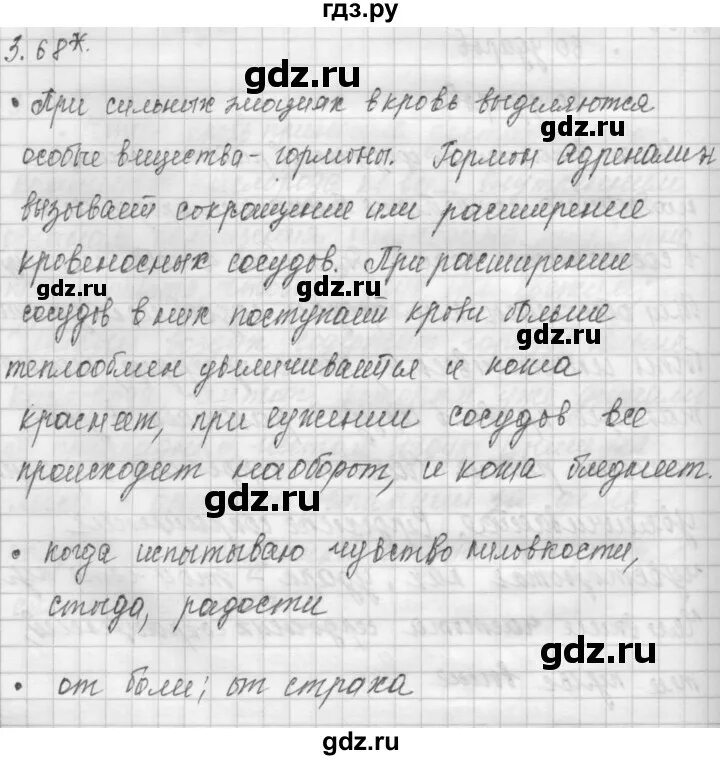 гдз.ру
3.68*.
gdz.ru
• При сильных эмоциях в кровь выделяются
gdz.ru
особые вещества - гормоны. Гормон адреналин
вызывает сокращение или расширение
кровеносных сосудов. При расширении
gdz.ru gdz.ru
сосудов в них поступает крови больше
теплообмен увеличивается и кожа
gdz.ru
краснеет, при сужении сосудов все
происходит наоборот, и кожа бледнеет.
gdz.ru
• когда испытываю чувство неловкости,
gdz.ru
стыда, радости
gdz.ru
• от боли; от страха
gdz.ru
gdz.ru